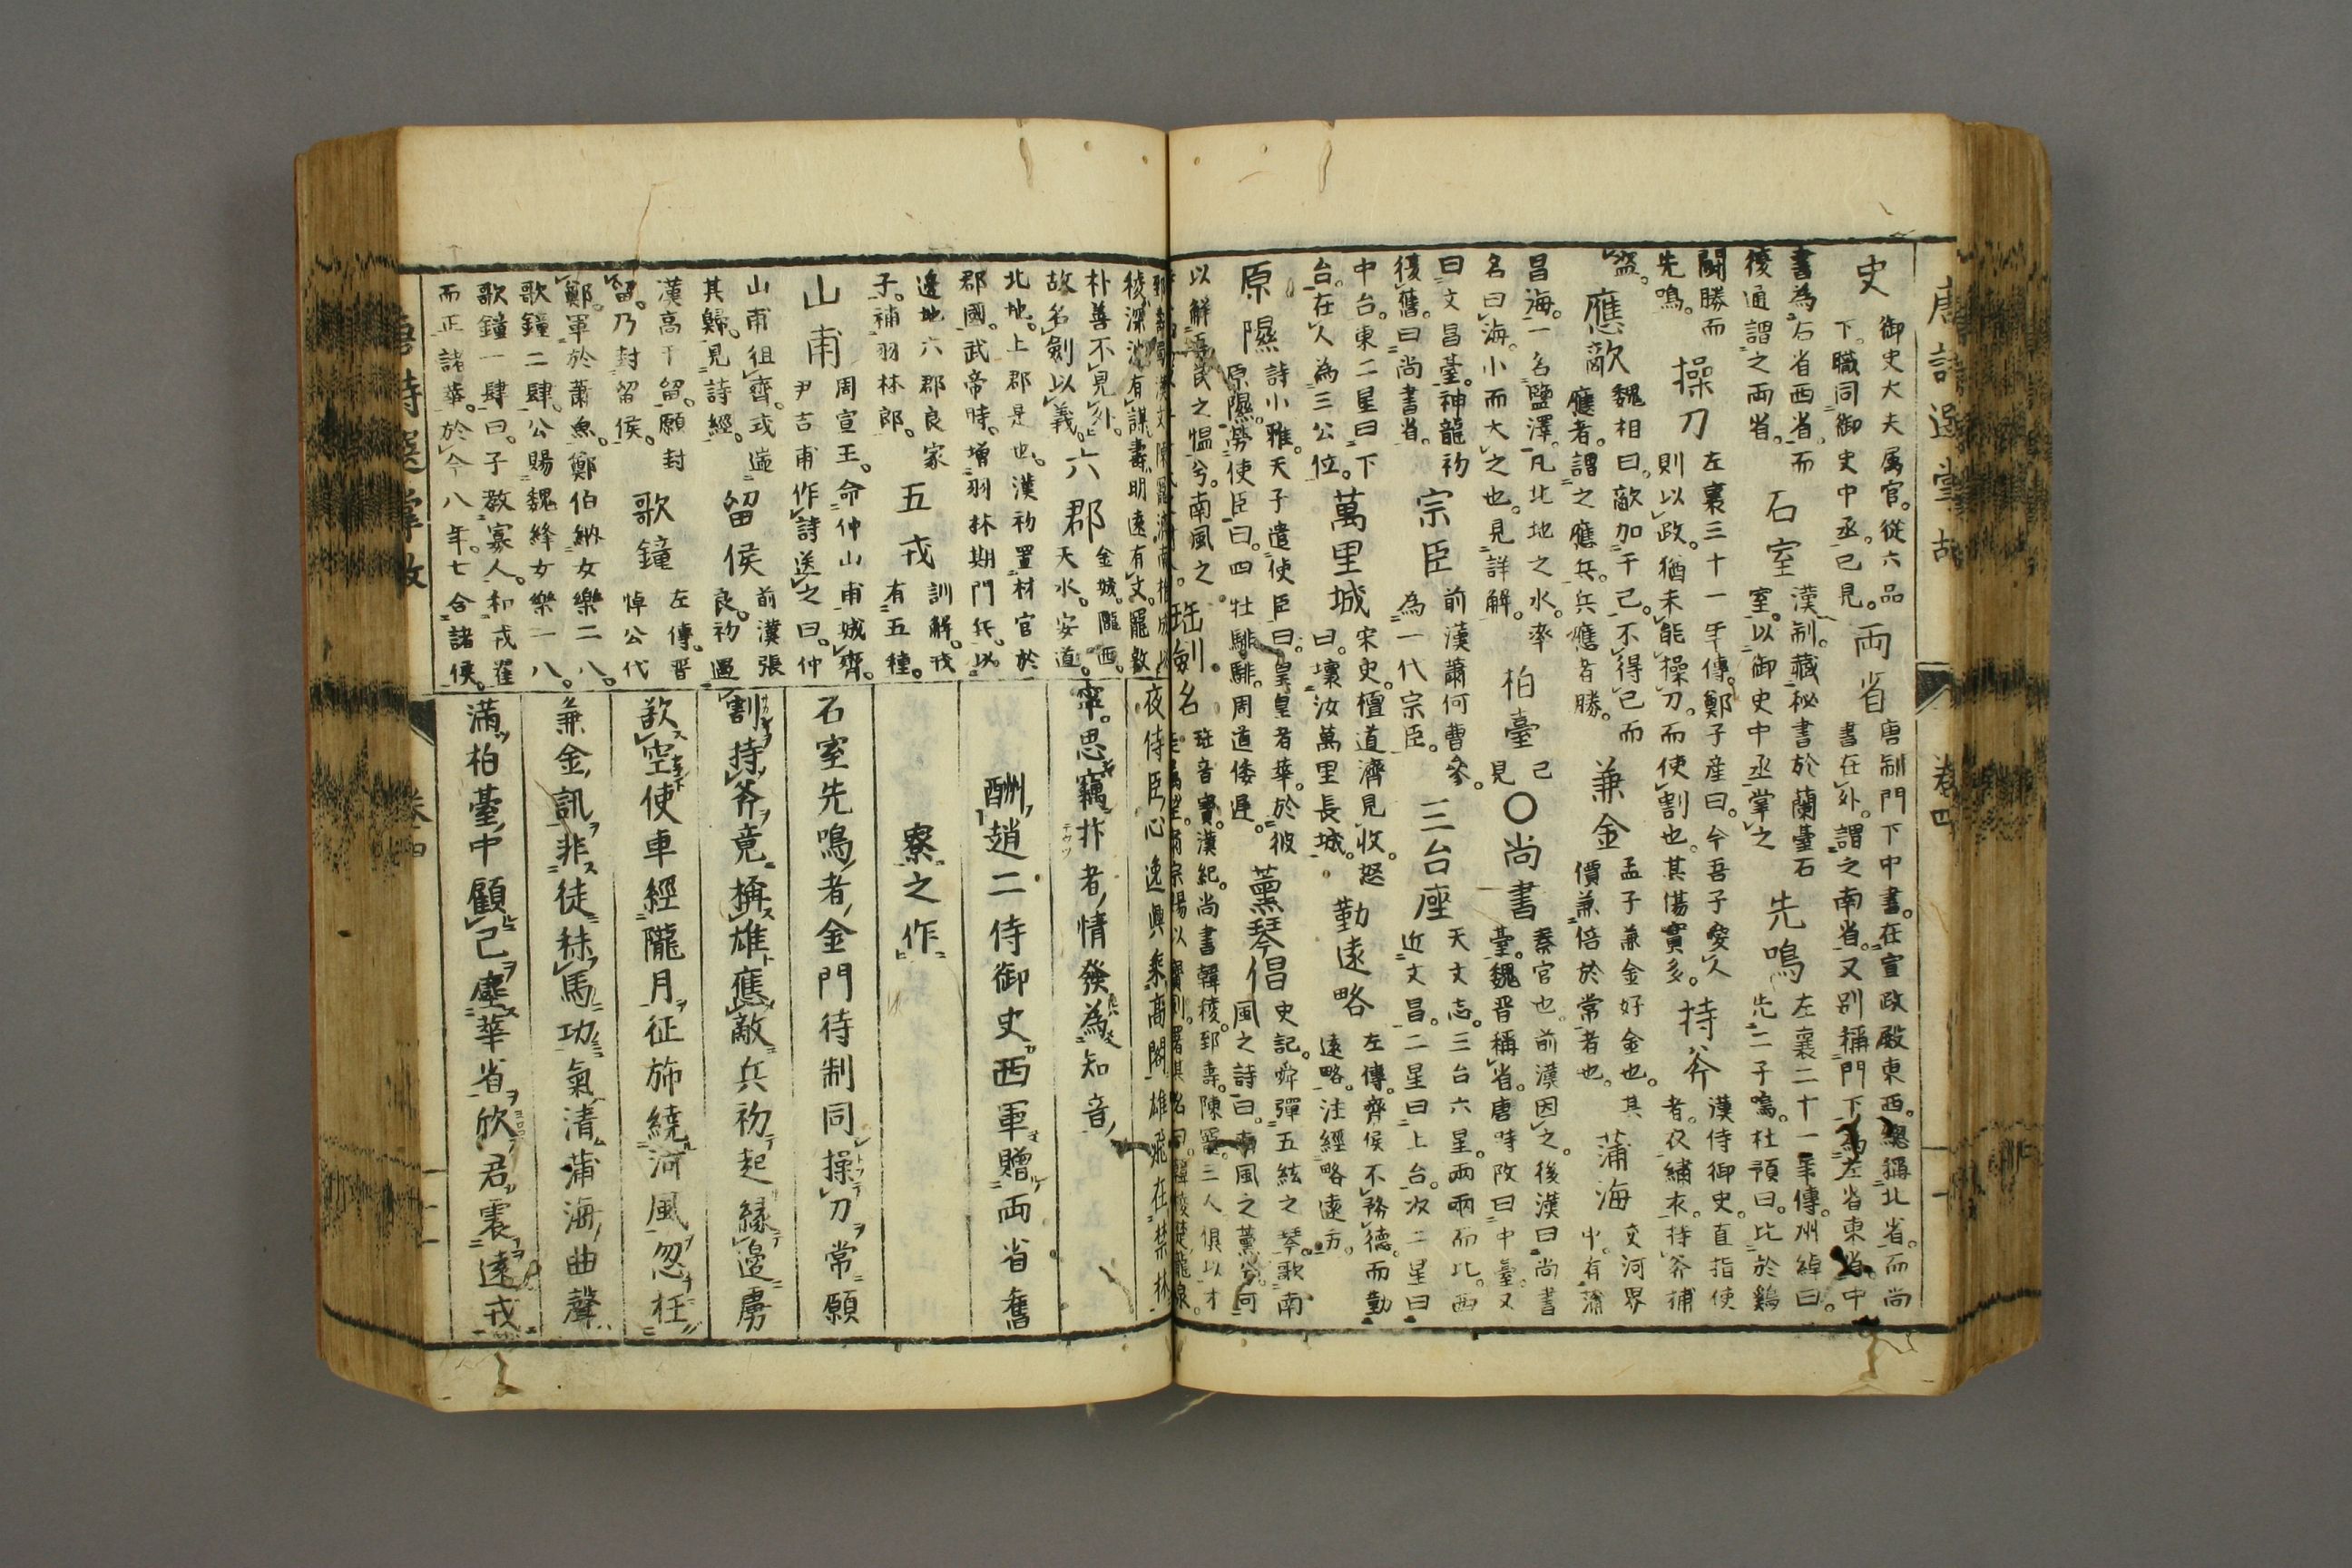 唐詩選掌故 卷四
史 御史大夫属官。從六品
下。職同御史中丞。已見。
両省 唐制門下中書。在宣政殿東西。總稱北省。而尚
書在外。謂之南省。又別稱門下為左省東省。中
書為右省西省。而
後通謂之両省。
石室 漢制。藏秘書於蘭臺石
室。以御史中丞掌之
先鳴 左襄二十一年傳。州綽曰。
先二子鳴。杜預曰。比於鷄
闘勝而
先鳴。
操刀 左襄三十一年傳。鄭子産曰。今吾子愛人
則以政。猶未能操刀。而使割也。其傷實多。
持斧 漢侍御史。直指使
者。衣繡衣。持斧捕
盗。
應敵 魏相曰。敵加于己。不得已而
應者。謂之應兵。兵應者勝。
兼金 孟子兼金好金也。其
價兼倍於常者也。
蒲海 交河界
中。有蒲
昌海。一名鹽澤。凡北地之水。率
名曰海。小而大之也。見詳解。
柏臺 已
見
〇尚書 秦官也。前漢因之。後漢曰尚書
臺。魏晋稱省。唐時改曰中臺。又
曰文昌臺。神龍初
復舊。曰尚書省。
宗臣 前漢蕭何曹參。
為一代宗臣。
三台座 天文志。三台六星。兩兩而比。西
近文昌。二星曰上台。次二星曰
中台。東二星曰下
台。在人為三公位。
萬里城 宋史。檀道濟見收。怒
曰。壊汝萬里長城。
勤遠略 左傳。齊侯不務德。而勤
遠略。注經略遠方。
原隰 詩小雅。天子遣使臣曰。皇皇者華。於彼
原隰。勞使臣曰。四牡騑騑。周道倭遲。
薫琴倡 史記。舜彈五絃之琴。歌南
風之詩曰。南風之薫兮。可
以解吾民之愠兮。南風之
珤劍名 珤音寶。漢紀。尚書韓稜。郅壽。陳寵。三人俱以才
稜深沈有謀。壽明遠有文。寵敦
朴善不見外。
故名劍以義。
六郡 金城。隴西。
天水。安道。
北地。上郡是也。漢初置材官於
郡國。武帝時。增羽林期門兵。以
邊地六郡良家
子。補羽林郎。
五戎 訓解。戎
有五種。
山甫 周宣王。命仲山甫城齊。
尹吉甫作詩送之曰。仲
山甫徂齊。式遄
其歸。見詩經。
留侯 前漢張
良。初遇
漢高于留。願封
留。乃封留侯。
歌鐘 左傳。晋
悼公代
鄭。軍於蕭魚。鄭伯納女樂二八。
歌鐘二肆。公賜魏絳女樂一八。
歌鐘一肆曰。子教寡人。和戎翟
而正諸華。於今八年。七合諸侯。
夜侍臣心逸興乗高閣雄飛在禁林
寀。思竊抃者情發為知音
酬趙二侍御史西軍贈両省舊
寮之作
石室先鳴者金門待制同操刀常願
割持斧竟稱雄應敵兵初起緣邊虜
欲空使車經隴月征斾繞河風忽枉
兼金訊非徒秣馬功氣清蒲海曲聲
滿柏臺中顧己塵華省欣君震遠戎
唐詩選掌故 卷四